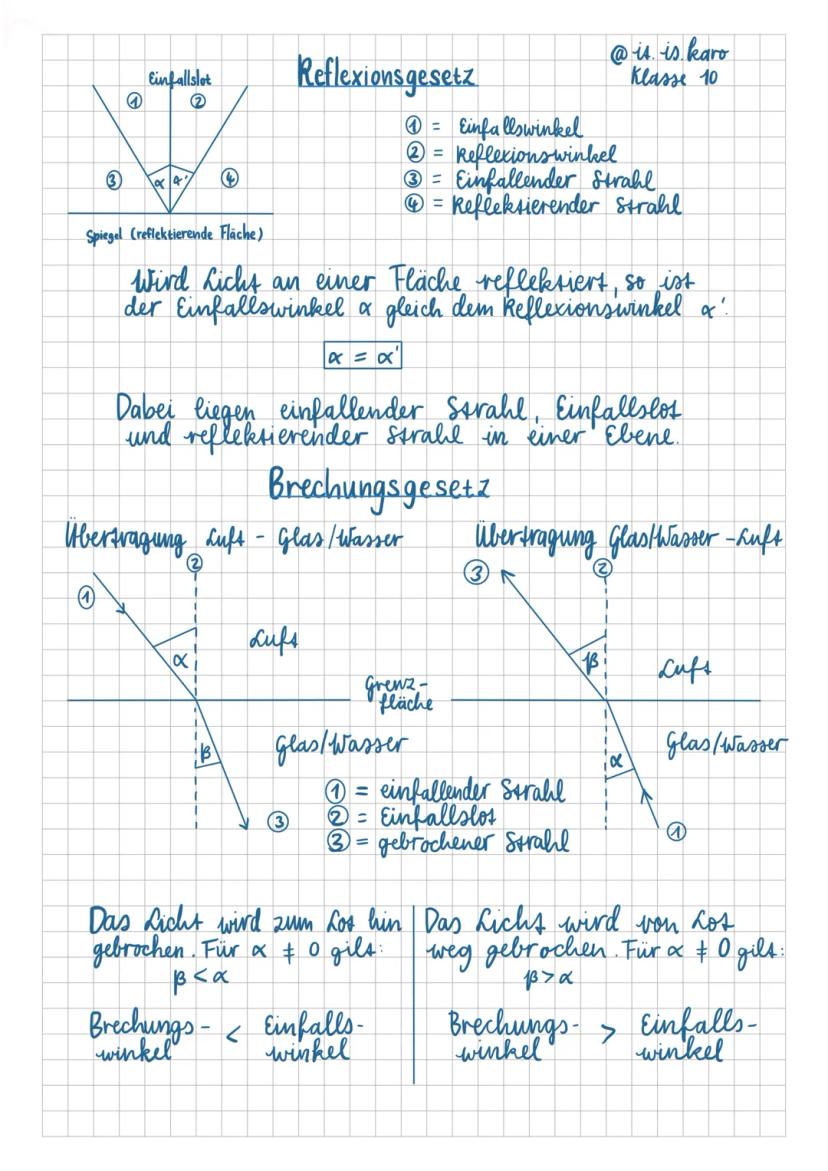 @ is. is. karo
Reflexionsgesetz
Klasse 10
Einfallslot
① ②
③ α α' ④
Spiegel (reflektierende Fläche)
① = Einfallswinkel
② = Reflexionswinkel
③ = Einfallender Strahl
④ = Reflektierender Strahl
Wird Licht an einer Fläche reflektiert, so ist
der Einfallswinkel α gleich dem Reflexionswinkel α'.
α = α'
Dabei liegen einfallender Strahl, Einfallslot
und reflektierender Strahl in einer Ebene.
Brechungsgesetz
Übertragung Luft - Glas/Wasser
①
②
α
Luft
β
Glas/Wasser
③
Grenz-
fläche
Übertragung Glas/Wasser - Luft
③
②
β
Luft
Glas/Wasser
α
①
① = einfallender Strahl
② = Einfallslot
③ = gebrochener Strahl
Das Licht wird zum Lot hin
gebrochen. Für α ≠ 0 gilt:
β < α
Brechungs- < Einfalls-
winkel winkel
Das Licht wird von Lot
weg gebrochen. Für α ≠ 0 gilt:
β > α
Brechungs- > Einfalls-
winkel winkel